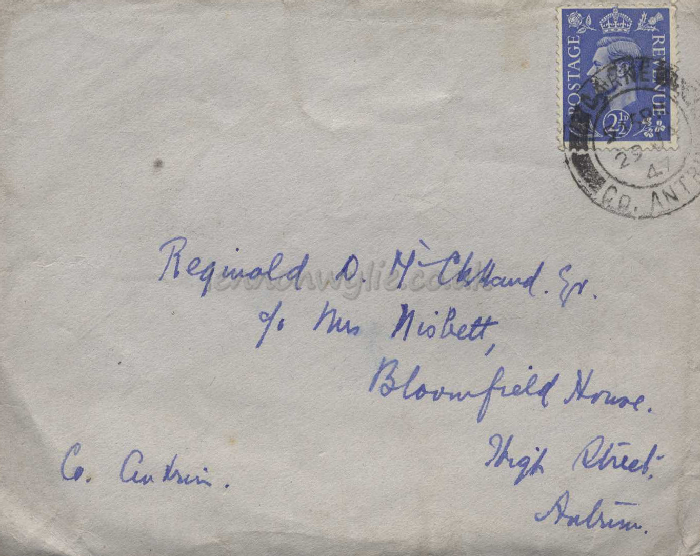 POSTAGE
REVENUE
2½D
LARNE
29
47
CO. ANTR
Reginald D McClelland. Esr.
c/o Mrs Nisbett,
Bloomfield House.
High Street.
Antrim.
Co. Antrim.
lennonwylie.co.uk